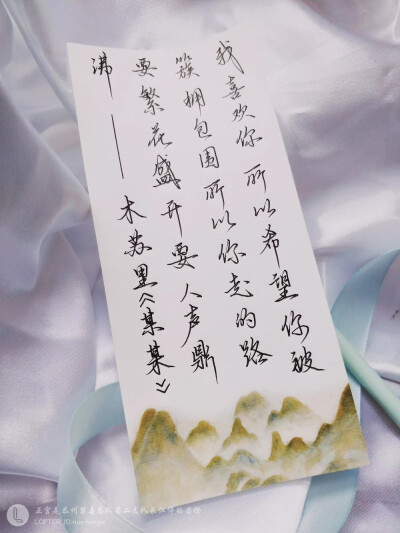 我喜欢你 所以希望你被
簇拥包围 所以你走的路
要繁花盛开 要人声鼎
沸 —— 木苏里《某某》
LOFTER